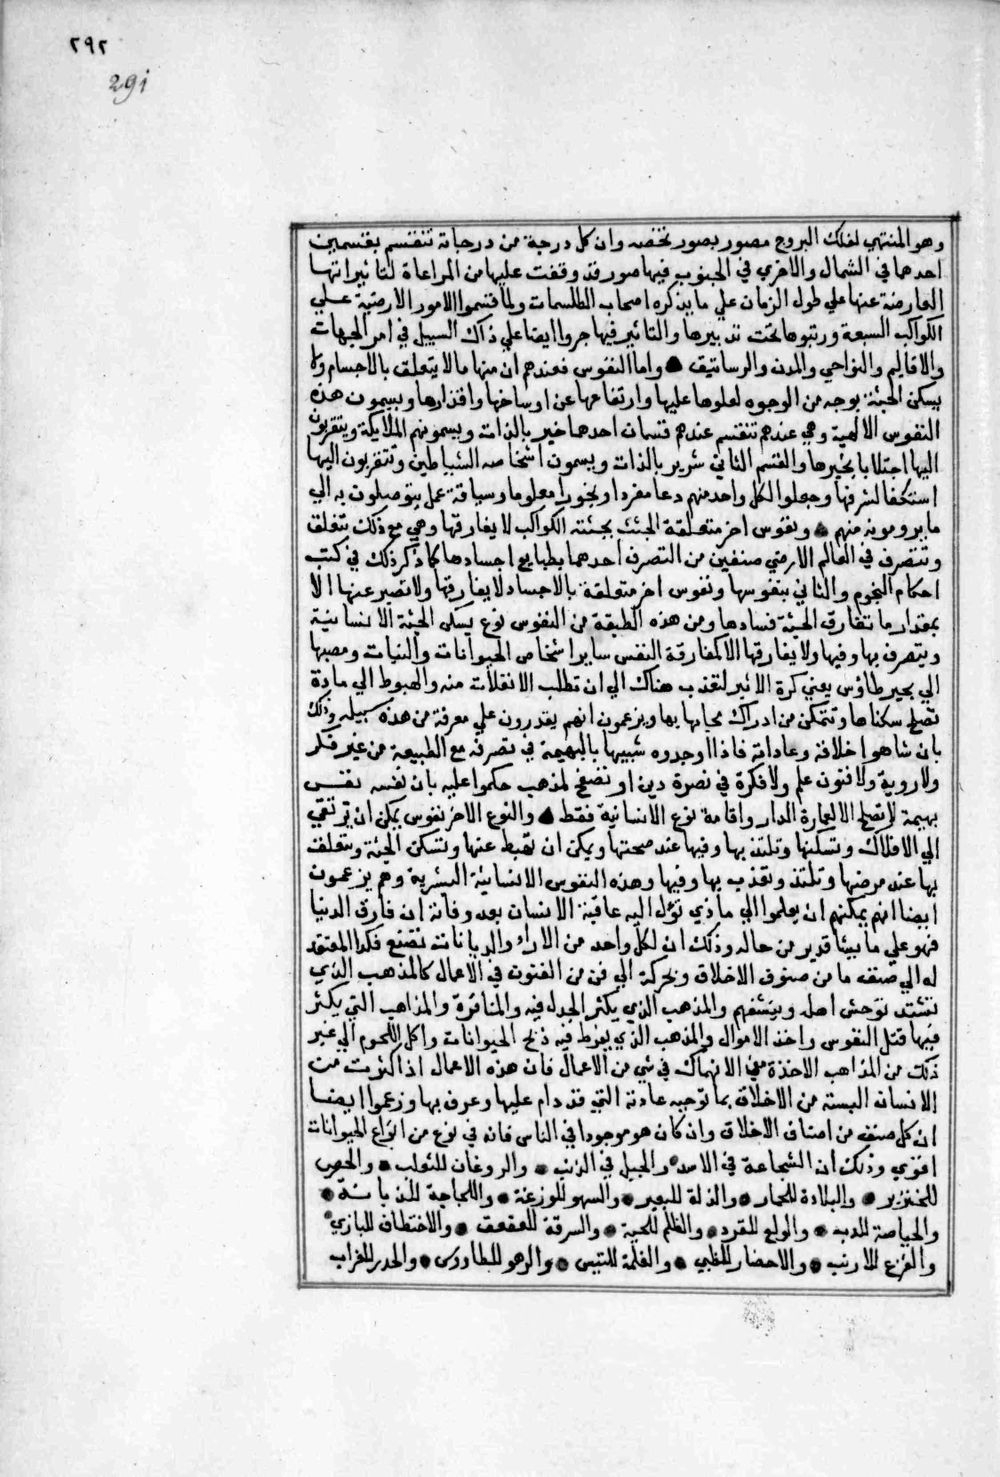 ٢٩٢
291
وهو المنتهي لفلك البروج مصور بصور تخصه وان كل درجة من درجاته تنقسم بقسمين
احدهما في الشمال والاخري في الجنوب فيها صور قد وقفت عليها من المراعاة لتاثيراتها
العارضة عنها علي طول الزمان علي ما يذكره اصحاب الطلسمات ولما قسموا الامور الارضية علي
الكواكب السبعة ورتبوها تحت تدبيرها والتاثير فيها جروا ايضا علي ذاك السبيل في امر الجهات
والاقاليم والنواحي والمدن والرساتيق واما النفوس فعندهم ان منها ما لا يتعلق بالاجسام ولا
يسكن الجثة بوجه من الوجوه لعلوها عليها وارتفاعها عن اوساخها واقذارها ويسمون هذه
النفوس الالهية وهي عندهم تنقسم عندهم قسمان احدهما خير بالذات ويسمونهم الملايكة ويتقربون
اليها اجتلابا بخيرها والقسم الثاني شرير بالذات ويسمون اشخاصه الشياطين وتتقربون اليها
استكفا لشرفها وجعلوا لكل واحد منهم دعا مفردا وبخورا معلوما وسياقة عمل يتوصلون به الي
ما يرومونه منهم ونفوس اخر متعلقة الجثث بجثته الكواكب لا يفارقها وهي مع ذلك تتعلق
وتتصرف في العالم الارضي صنفين من التصرف احدهما بطبايع اجسادها كما ذكر ذلك في كتب
احكام النجوم والثاني بنفوسها ونفوس اخر متعلقة بالاجساد لا يفارقها ولا تصبر عنها الا
بمقدار ما تفارق الجثة فسادها ومن هذه الطبقة من النفوس نوع يسكن الجثة الانسانية
ويتصرف بها وفيها ولا يفارقها الا كمفارقة النفس ساير اشخاص الحيوانات والنبات ومصبها
الي بحير طاؤس يعني كرة الاثير لتعذب هناك الي ان تطلب الانفلات منه والهبوط الي مادة
تصلح سكناها وتتمكن من ادراك محابها بها ويزعمون انهم يقدرون علي معرفة من هذه سبيله وذلك
بان شاهوا اخلاقه وعاداته فاذا وجدوه شبيها بالبهيمة في تصرفه مع الطبيعة من غير فكر
ولا روية ولا فنون علم ولا فكرة في نصرة دين او تصفح لمذهب حكموا عليه بان نفسه نفس
بهيمة لا تصلح الا لعمارة الدار واقامة نوع الانسانية فقط والنوع الاخر نفوس يمكن ان ترتقي
الي الافلاك وتسكنها وتلتذ بها وفيها عند صحتها ويمكن ان تهبط عنها وتسكن الجثة ويتعلق
بها عند مرضها وتلتذ وتعذب بها وفيها وهذه النفوس الانسانية البشرية وهم يزعمون
ايضا انهم يمكنهم ان يعلموا الي ما ذي تؤل اليه عاقبة الانسان بعد وفاته ان فارق الدنيا
فهو علي ما بيننا قدير من حاله وذلك ان لكل واحد من الاراء والديانات تصنع فكر المعتقد
له الي صنف ما من صنوف الاخلاق وبحركة الي فن من الفنون في الاعمال كالمذهب الذي
تشتد توحش اهله ويتشفهم والمذهب الذي يكثر الجدل فيه والمناثرة والمذاهب التي يكثر
فيها قتل النفوس واخذ الاموال والمذهب الذي يفرط فيه ذبح الحيوانات واكل اللحوم الي غير
ذلك من المذاهب الاخذة مني الانهماك في شي من الاعمال فان هذه الاعمال اذا كثرت من
الانسان البسته من الاخلاق بما توجبه عادته التي قد دام عليها وعرف بها وزعموا ايضا
ان كل صنف من اصناف الاخلاق وان كان هو موجودا في الناس فانه في نوع من انواع الحيوانات
اقوي وذلك ان الشجاعة في الاسد والجبل في الذئب والروغان للثعلب والحرص
للخنزير والبلادة للحمار والذلة للبعير والسهو للوزغة واللجاجة للذبابة
والحياصة للدب والولع للقرد والظلم للحية والسرقة للعقعق والاختطاف للبازي
والفزع للارنب والاحضار للظبي والغلمة للتيس والزهو للطاوس والحذر للغراب